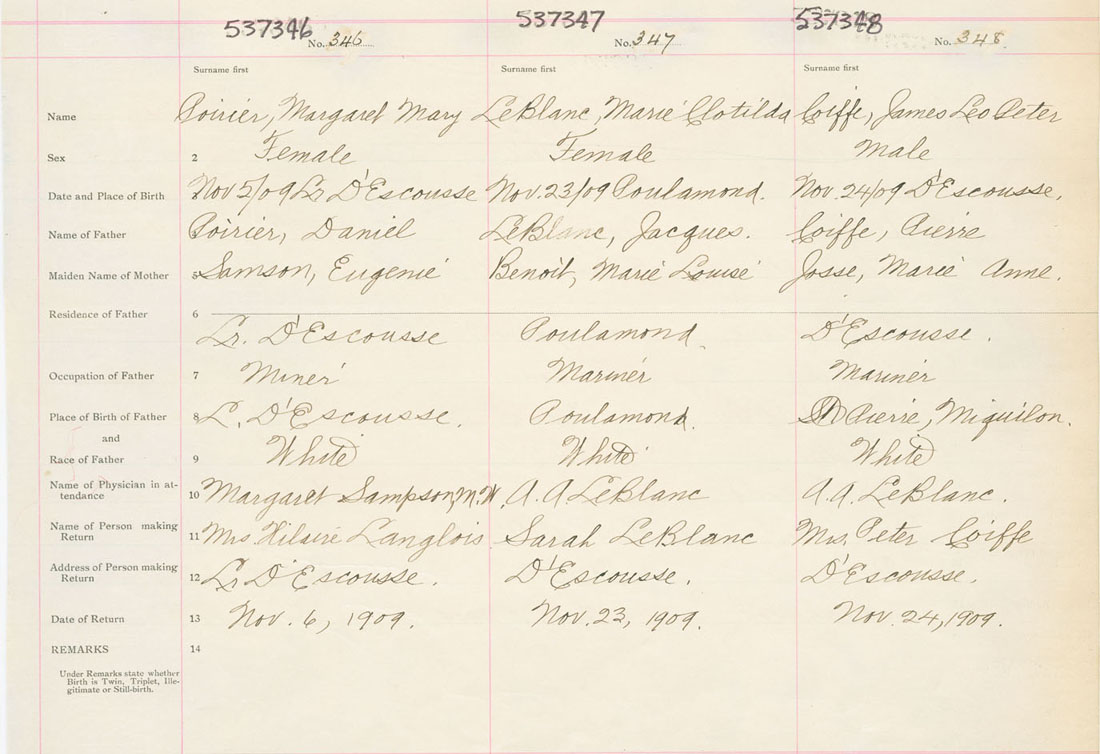 537346 537347 537348
No. 346 No. 347 No. 348
Surname first Surname first Surname first
Name Poirier, Margaret Mary LeBlanc, Marie Clotilda Coiffe, James Leo Peter
Sex 2 Female Female Male
Date and Place of Birth Nov 5/09 Lr D'Escousse Nov. 23/09 Poulamond. Nov. 24/09 D'Escousse.
Name of Father Poirier, Daniel LeBlanc, Jacques. Coiffe, Pierre
Maiden Name of Mother 5 Samson, Eugenie Benoit, Marie Louise Josse, Marie Anne.
Residence of Father 6
Lr. D'Escousse Poulamond D'Escousse.
Occupation of Father 7 Miner Mariner Mariner
Place of Birth of Father 8 L. D'Escousse. Poulamond. St Pierre, Miquilon.
and
Race of Father 9 White White White
Name of Physician in at-
tendance 10 Margaret Sampson, M.W. A. A. LeBlanc A. A. LeBlanc.
Name of Person making
Return 11 Mrs Hilaire Langlois Sarah LeBlanc Mrs. Peter Coiffe
Address of Person making
Return 12 Lr D'Escousse. D'Escousse. D'Escousse.
Date of Return 13 Nov. 6, 1909. Nov. 23, 1909. Nov. 24, 1909.
REMARKS 14
Under Remarks state whether
Birth is Twin, Triplet, Ille-
gitimate or Still-birth.